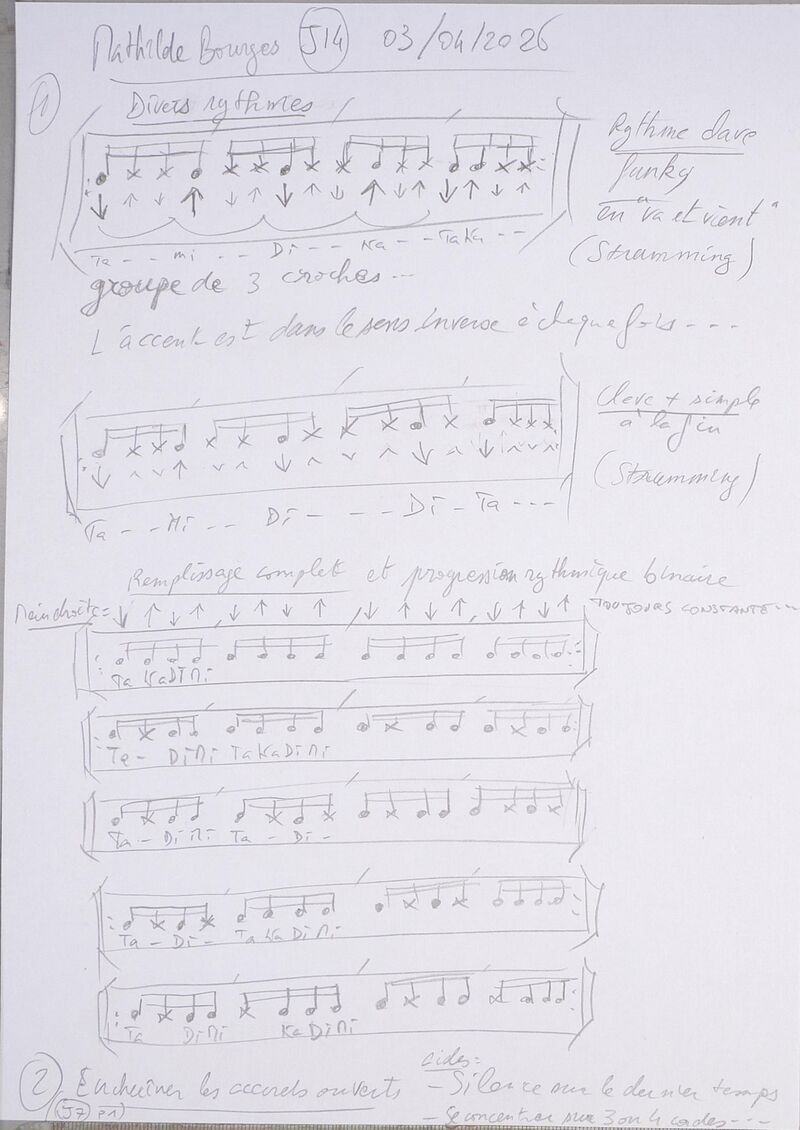 Mathilde Bourges J14 03/04/2026
1
Divers rythmes
Rythme clave
funky
en "va et vient"
(Strumming)
Ta - - mi - - Di - - Ka - - TaKa - -
groupe de 3 croches...
L'accent est dans le sens inverse à chaque fois - - -
Clave + simple
à la fin
(Strumming)
Ta - - Mi - - Di - - - Di - Ta - - -
Remplissage complet et progression rythmique binaire
Main droite = ↓ ↑ ↓ ↑, ↓ ↑ ↓ ↑, ↓ ↑ ↓ ↑, ↓ ↑ ↓ ↑ TOUJOURS CONSTANTE...
Ta KaDiMi
Ta - DiMi TaKaDiMi
Ta - DiMi Ta - Di -
Ta - Di - TaKaDiMi
Ta DiMi KaDiMi
2 Enchaîner les accords ouverts
(J7 P1)
aides:
- Silence sur le dernier temps
- Se concentrer sur 3 ou 4 cordes - - -